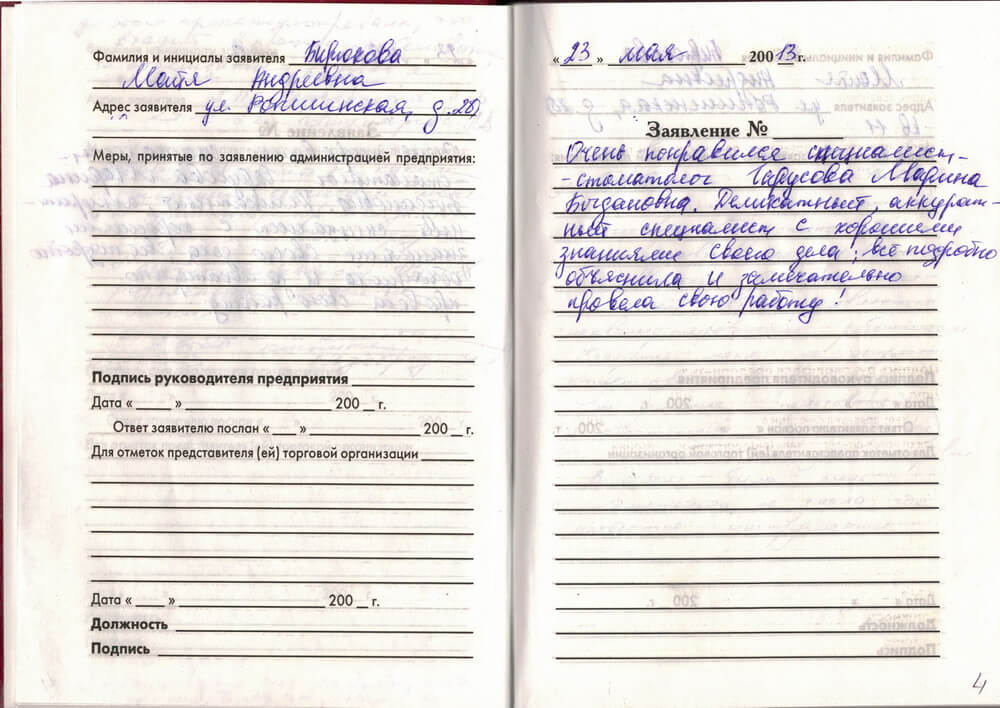 Фамилия и инициалы заявителя Бирюкова
Майя Андреевна
Адрес заявителя ул. Ропшинская, д. 20,
Меры, принятые по заявлению администрацией предприятия:
Подпись руководителя предприятия
Дата « » 200 г.
Ответ заявителю послан « » 200 г.
Для отметок представителя (ей) торговой организации
Дата « » 200 г.
Должность
Подпись
« 23 » мая 200 13 г.
Заявление №
Очень понравился специалист-
-стоматолог Гарусова Марина
Богдановна. Деликатный, аккурат-
ный специалист с хорошими
знаниями своего дела; всё подробно
объяснила и замечательно
провела свою работу!
4